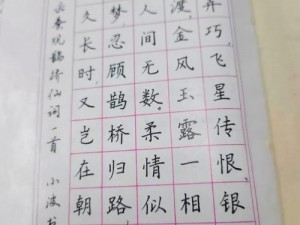 弄巧，飞星传恨，银
渡。金风玉露一相
人间无数。柔情似
梦，忍顾鹊桥归路
久长时又岂在朝
秦观鹊桥仙词一首 小波书